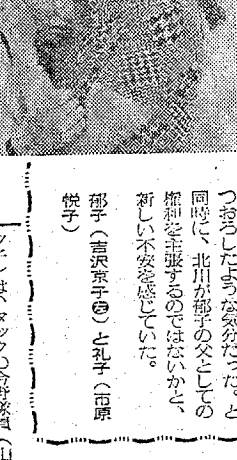 つおろしたような気分だった。と
同時に、北川が郁子の父としての
権利を主張するのではないかと、
新しい不安を感じていた。
郁子（吉沢京子㊨）と礼子（市原
悦子）